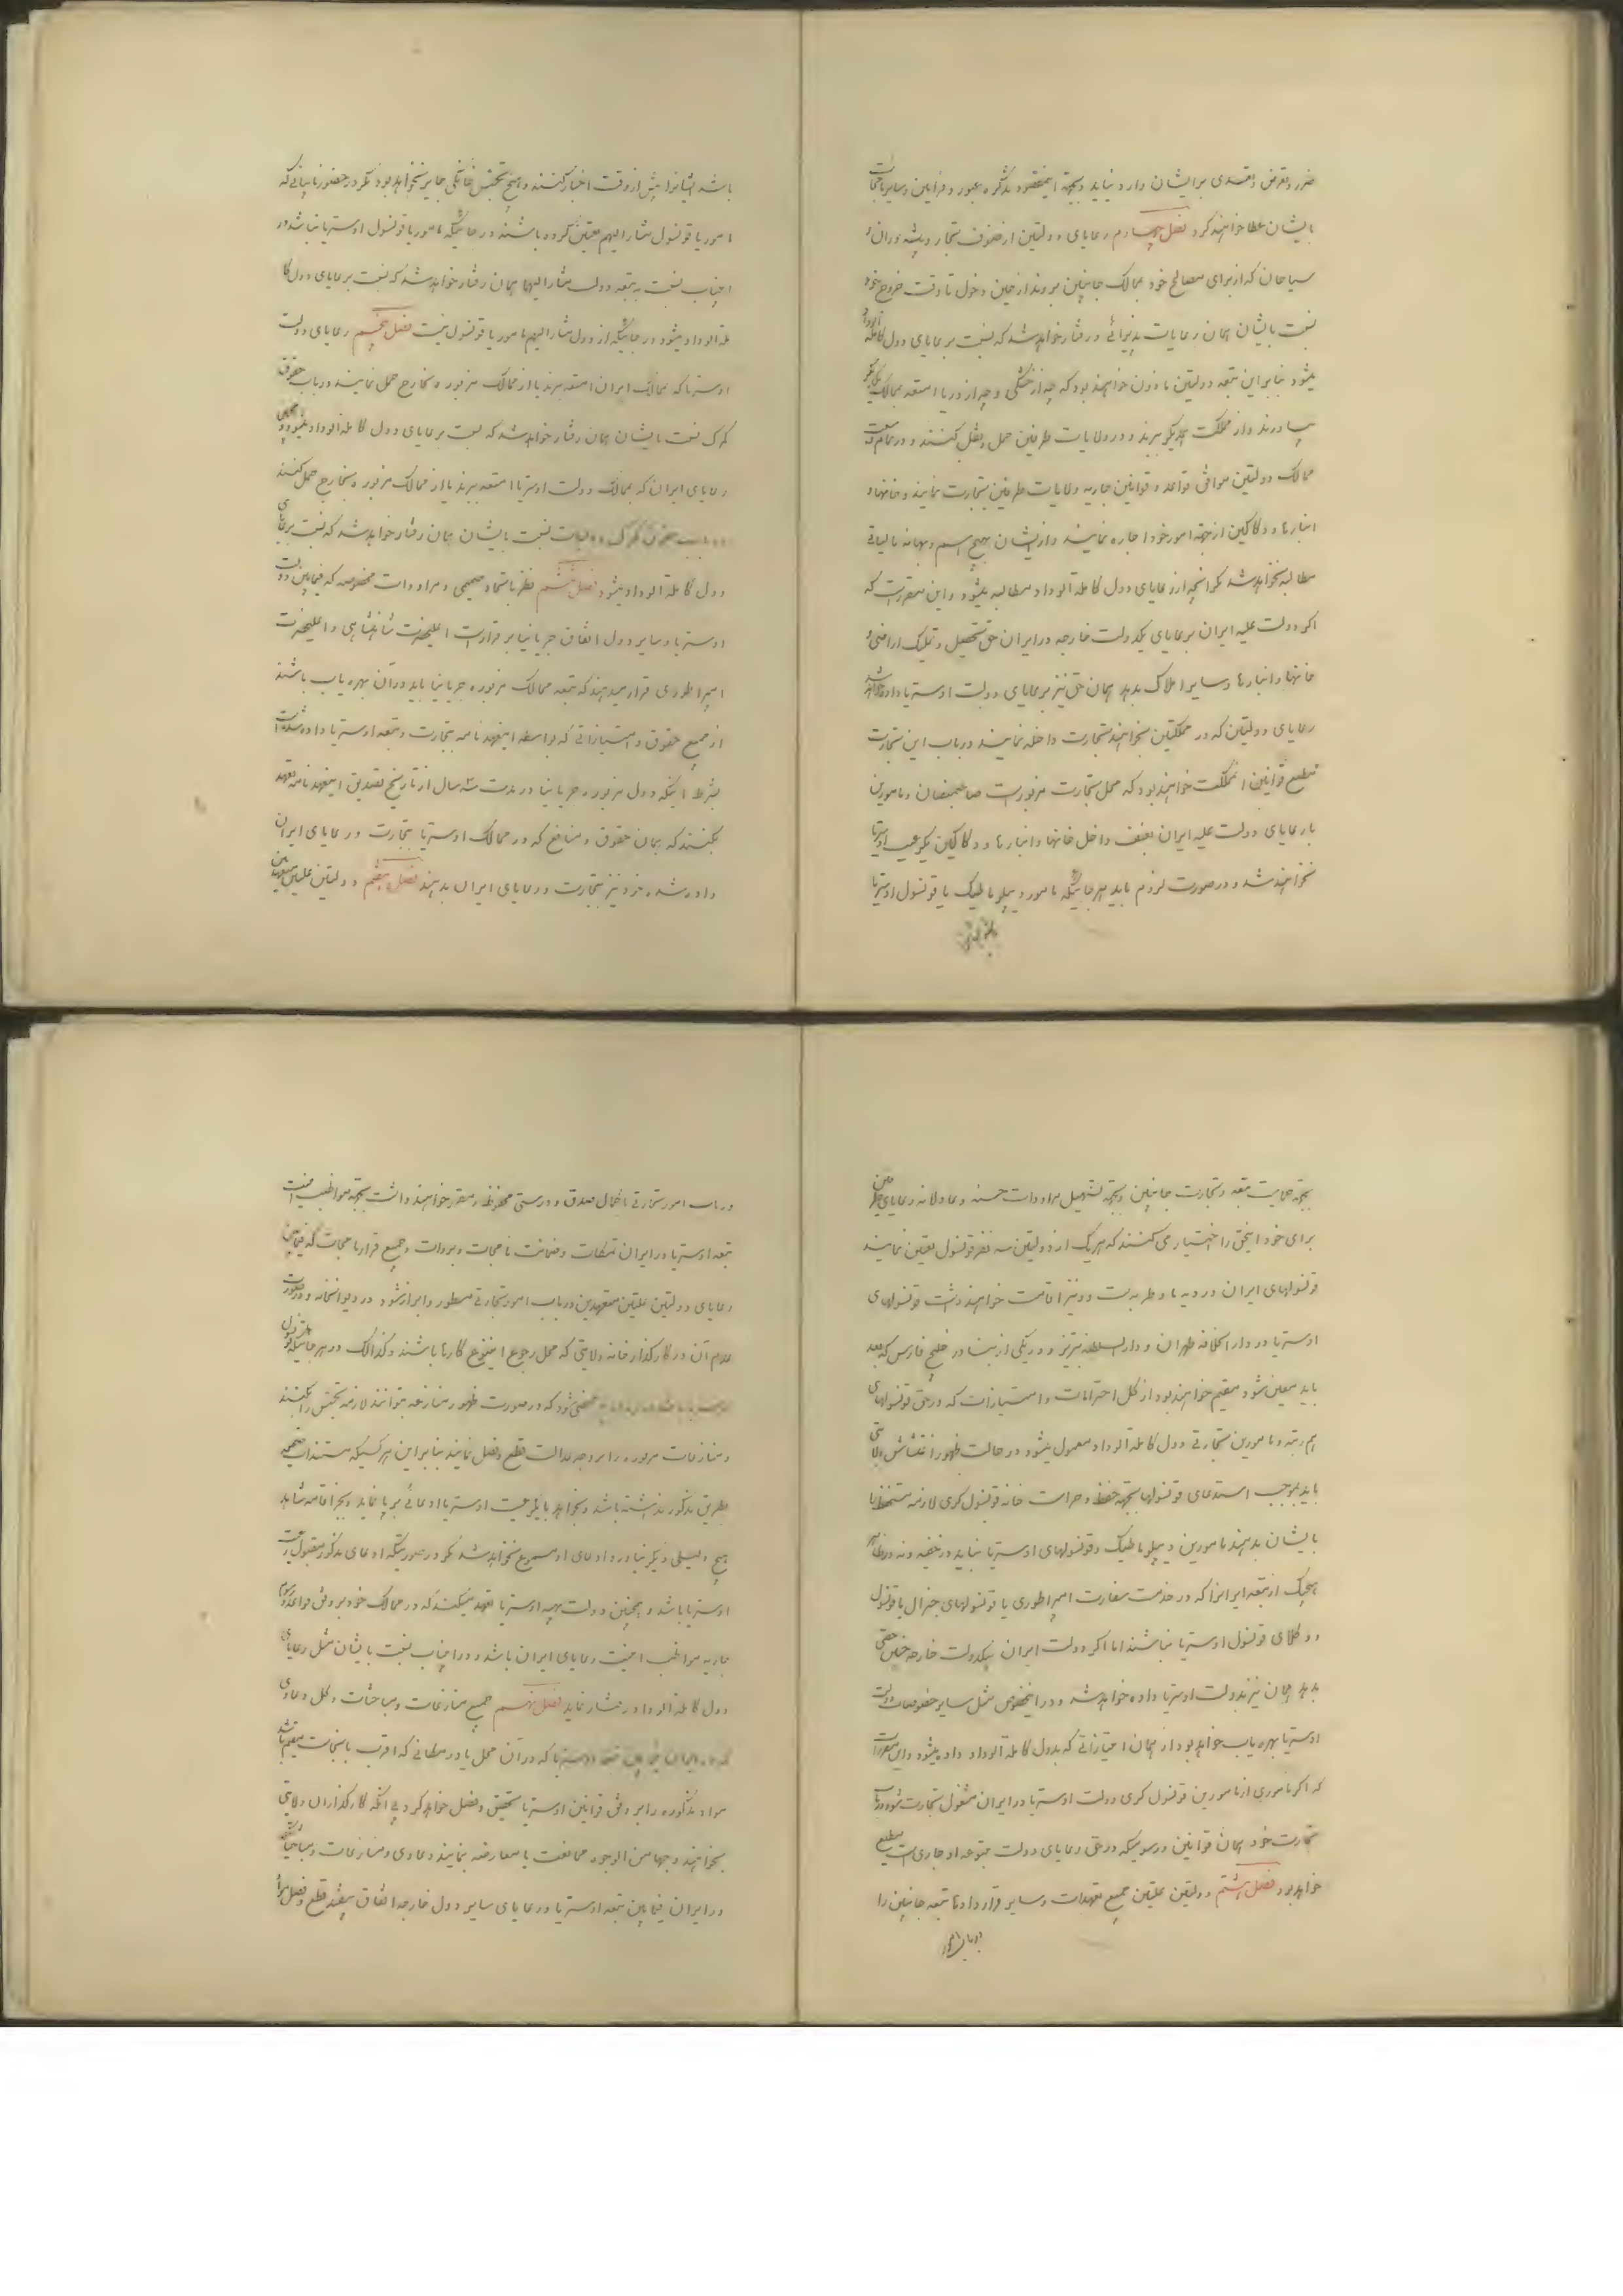 ضرر و تعرض و تعدی بر ایشان وارد نیاید و بجهة اینمقصود تذکره عبور و فرامین و سایر نامجات
بایشان عطا خواهند کرد فصل چهارم رعایای دولتین از صنوف تجار و پیشه وران و
سیاحان که از برای مصالح خود بممالک جانبین بروند از حین دخول تا وقت خروج خود
نسبت بایشان همان رعایات پذیرائی و رفتار خواهد شد که نسبت بر عایای دول کاملة الوداد
میشود بنابراین تبعه دولتین ماذون خواهند بود که چه از خشکی و چه از دریا امتعه بممالک یکدیگر
بیاورند و از مملکت یکدیگر ببرند و در ولایات طرفین حمل و نقل کنند و در تمام وسعت
ممالک دولتین موافق قواعد و قوانین جاریه ولایات طرفین تجارت نمایند و خانها و
انبارها و دکاکین از جهة امور خود اجاره نمایند و از ایشان بهیچ اسم و بهانه مالیاتی
مطالبه نخواهد شد مگر آنچه از رعایای دول کاملة الوداد مطالبه میشود و این مقرر است که
اگر دولت علیه ایران بر عایای یکدولت خارجه در ایران حق تحصیل و تملک اراضی و
خانها و انبارها و سایر املاک بدهد همان حق نیز بر عایای دولت اوستریا داده خواهد شد
رعایای دولتین که در مملکتین بخواهند تجارت داخله نمایند در باب این تجارت
مطیع قوانین آنمملکت خواهند بود که محل تجارت مزبور است صاحبمنصبان و مامورین
یا رعایای دولت علیه ایران بعنف داخل خانها و انبارها و دکاکین یکرعیت اوستریا
نخواهند شد و در صورت لزوم باید بهر جائیکه مامور دیپلوماطیک یا قونسول اوستریا
باشد ایشانرا پیش از وقت اخبار کنند و هیچ تجسس خانگی جایز نخواهد بود مگر در حضور نایبانیکه
مامور یا قونسول مشارالیهم معین کرده باشند در جائیکه مامور یا قونسول اوستریا نباشد در
اینباب نسبت به تبعه دولت مشارالیها همان رفتار خواهد شد که نسبت بر عایای دول کا
ملة الوداد میشود در جائیکه از دول مشارالیهم مامور یا قونسول نیست فصل پنجم رعایای دولت
اوستریا که بممالک ایران امتعه ببرند یا از ممالک مزبوره بخارج حمل نمایند در باب حقوق
گمرک نسبت بایشان همان رفتار خواهد شد که نسبت بر عایای دول کاملة الوداد میشود و همچنین
رعایای ایران که بممالک دولت اوستریا امتعه ببرند یا از ممالک مزبور بخارج حمل کنند
در باب حقوق گمرک و مالیات نسبت بایشان همان رفتار خواهد شد که نسبت بر عایای
دول کاملة الوداد میشود فصل ششم نظر باتحاد صمیمی و مراودات مخصوصه که فیمابین دولت
اوستریا و سایر دول اتفاق جرمانیا برقرار است اعلیحضرت شاهنشاهی و اعلیحضرت
امپراطوری قرار میدهند که تبعه ممالک مزبوره جرمانیا باید در آن بهره یاب باشند
از جمیع حقوق و امتیازاتی که بواسطه اینعهدنامه بتجارت و تبعه اوستریا داده شده است
بشرط اینکه دول مزبوره جرمانیا در مدت سه سال از تاریخ تصدیق اینعهدنامه تعهد
بکنند که همان حقوق و منافع که در ممالک اوستریا بتجارت و رعایای ایران
داده شده خود نیز بتجارت و رعایای ایران بدهند فصل هفتم دولتین علیتین متعاهدین
بجهة حمایت تبعه و تجارت جانبین و بجهة تسهیل مراودات حسنه و عادلانه رعایای طرفین
برای خود اینحق را اختیار می کنند که هریک از دولتین سه نفر قونسول تعیین نمایند
قونسولهای ایران در وینا و طریست و ونیز اقامت خواهند داشت قونسولهای
اوستریا در دارالخلافه طهران و دارالسلطنه تبریز و در یکی از بنادر خلیج فارس که بعد
باید معین شود مقیم خواهند بود از کل احترامات و امتیازات که در حق قونسولهای
هم رتبه و مامورین تجارتی دول کاملة الوداد معمول میشود در حالت ظهور اغتشاش ولایتی
باید بموجب استدعای قونسولها بجهة حفظ و حراست خانه قونسول گری لازمه مستحفظ را
بایشان بدهند مامورین دیپلوماطیک و قونسولهای اوستریا نباید در خفیه و نه در ظاهر
هیچیک از تبعه ایرانرا که در خدمت سفارت امپراطوری یا قونسولهای جنرال یا قونسول
و وکلای قونسول اوستریا نباشند اما اگر دولت ایران بیکدولت خارجه چنین حقی
بدهد همان نیز بدولت اوستریا داده خواهد شد و در اینخصوص مثل سایر خصوصیات دولت
اوستریا بهره یاب خواهد بود از همان امتیازاتی که بدول کاملة الوداد داده میشود و این مقرر است
که اگر ماموری از مامورین قونسول گری دولت اوستریا در ایران مشغول تجارت شود در باب
تجارت خود بهمان قوانین و رسومیکه در حق رعایای دولت متبوعه او جاری است مطیع
خواهد بود فصل هشتم دولتین علیتین جمیع تعهدات و سایر قراردادها تبعه جانبین را
در باب امور
در باب امور تجارتی با کمال صدق و درستی محفوظ و معتبر خواهند داشت بجهة مواظبت امنیت
تبعه اوستریا در ایران تمسکات و ضمانت نامجات و بروات و جمیع قرارنامجات که فیمابین
رعایای دولتین علیتین متعهدین در باب امور تجارتی مسطور و ابراز شود در دیوانخانه و در صورت
عدم آن در کارگذارخانه ولایتی که محل رجوع اینگونه کارها باشند و کذالک در هر جائیکه قونسول
ممضی شود که در صورت ظهور منازعه بتوانند لازمه تجسس را بکنند
و منازعات مزبوره را بر وجه عدالت قطع و فصل نمایند بنابراین هر کسیکه مستندات صحیحه
بطریق مذکور نداشته باشد و بخواهد با یکرعیت اوستریا ادعائی بر پا نماید و بجز اقامه شاهد
هیچ دلیلی دیگر نیاورد ادعای او مسموع نخواهد شد مگر در صورتیکه ادعای مذکور مقبول رعیت
اوستریا باشد و همچنین دولت بهیه اوستریا تعهد میکند که در ممالک خود بر وفق قواعد و رسوم
جاریه مواظب امنیت رعایای ایران باشد و در اینباب نسبت بایشان مثل رعایای
دول کاملة الوداد رفتار نماید فصل نهم جمیع منازعات و مباحثات و کل دعاوی
که در ایران فیمابین تبعه اوستریا که در آن محل یا در مکانی که اقرب بآنجاست مقیم باشد
مواد مذکوره را بر وفق قوانین اوستریا تحقیق و فصل خواهد کرد بی آنکه کارگذاران ولایتی
بخواهند وجها من الوجوه ممانعت یا معارضه نمایند دعاوی و منازعات و مباحثات
در ایران فیمابین تبعه اوستریا و رعایای سایر دول خارجه اتفاق بیفتد قطع و فصل آنرا